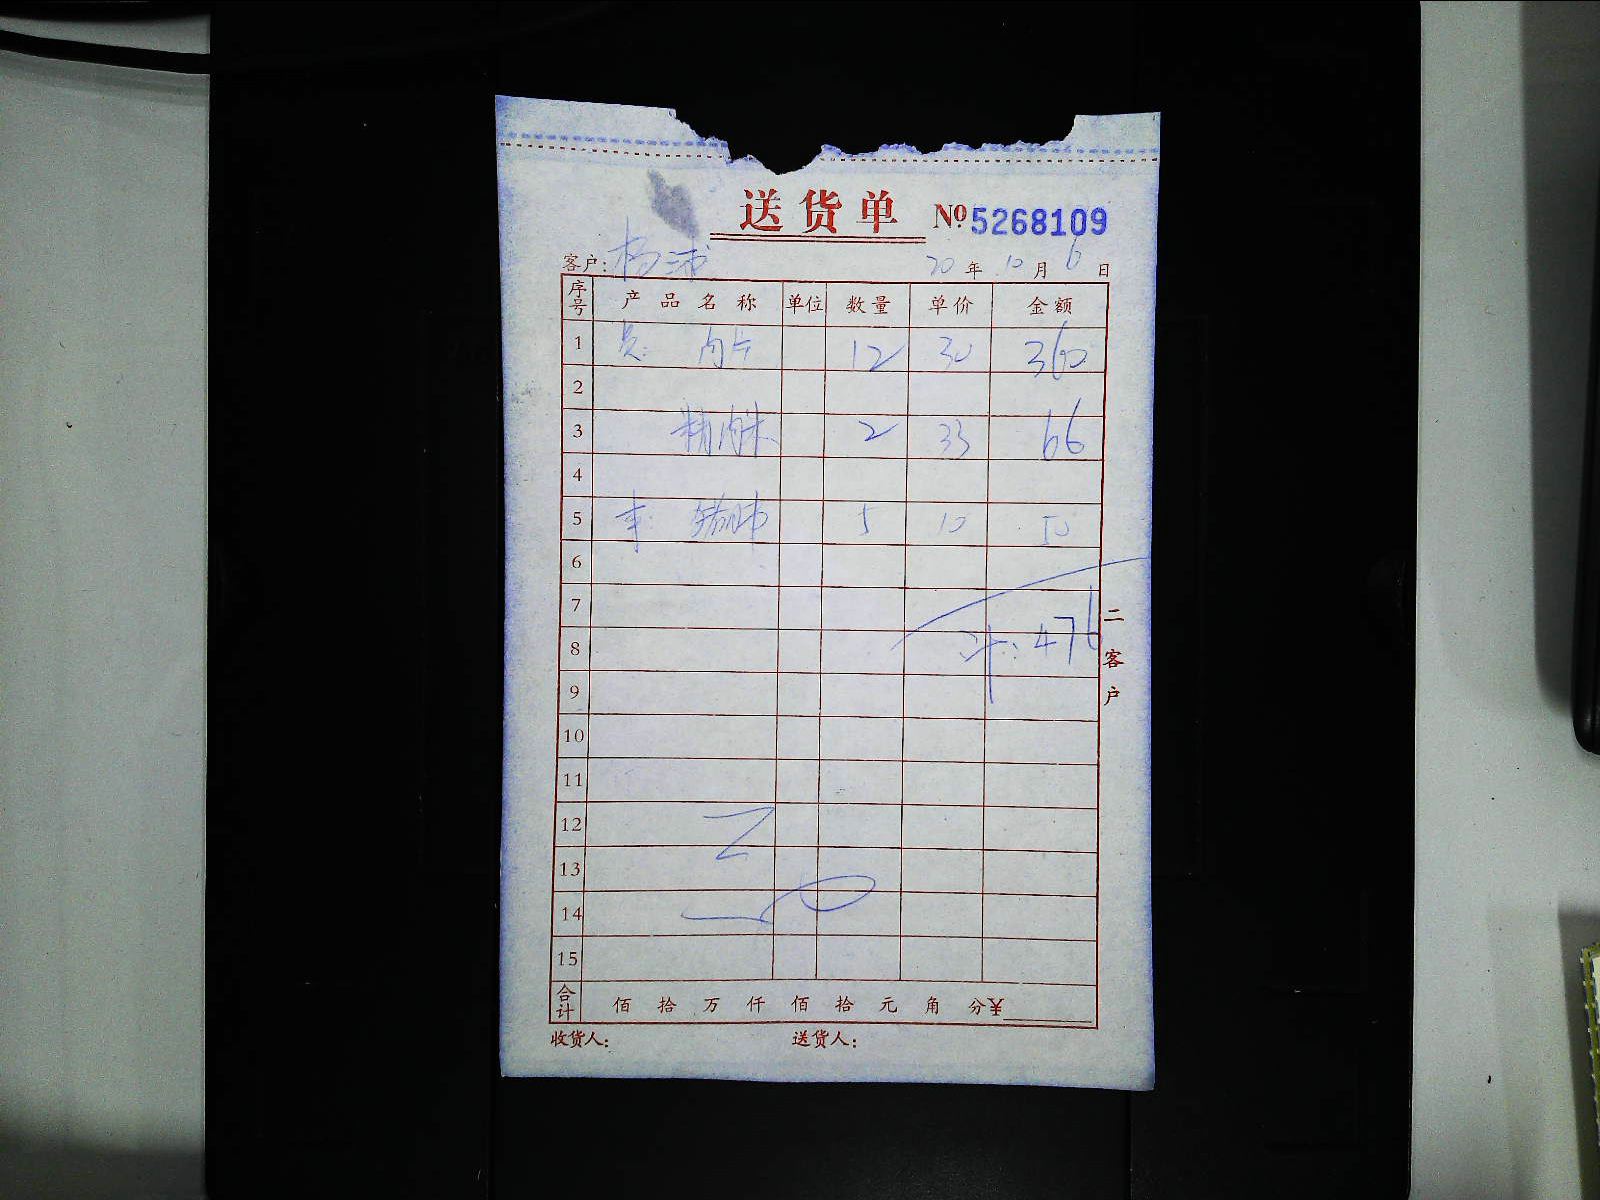 送货单 № 5268109
客户: 杨浦 20 年 10 月 6 日
序号 产品名称 单位 数量 单价 金额
1 肉片 12 30 360
2
3 精肉末 2 33 66
4
5 5 10 50
6
7
8 计: 476
9
10
11
12
13
14
15
合计 佰 拾 万 仟 佰 拾 元 角 分 ¥
收货人: 送货人:
二客户